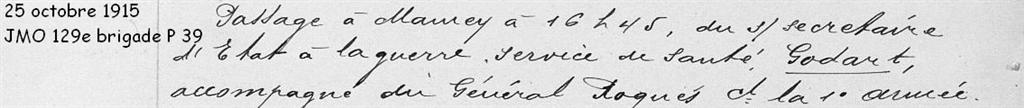 25 octobre 1915
JMO 129e brigade P 39
Passage à Mamey à 16 h 45, du s/ secretaire
d'Etat à la guerre, service de santé, Godart,
accompagné du Général Roques ct la 1e armée.